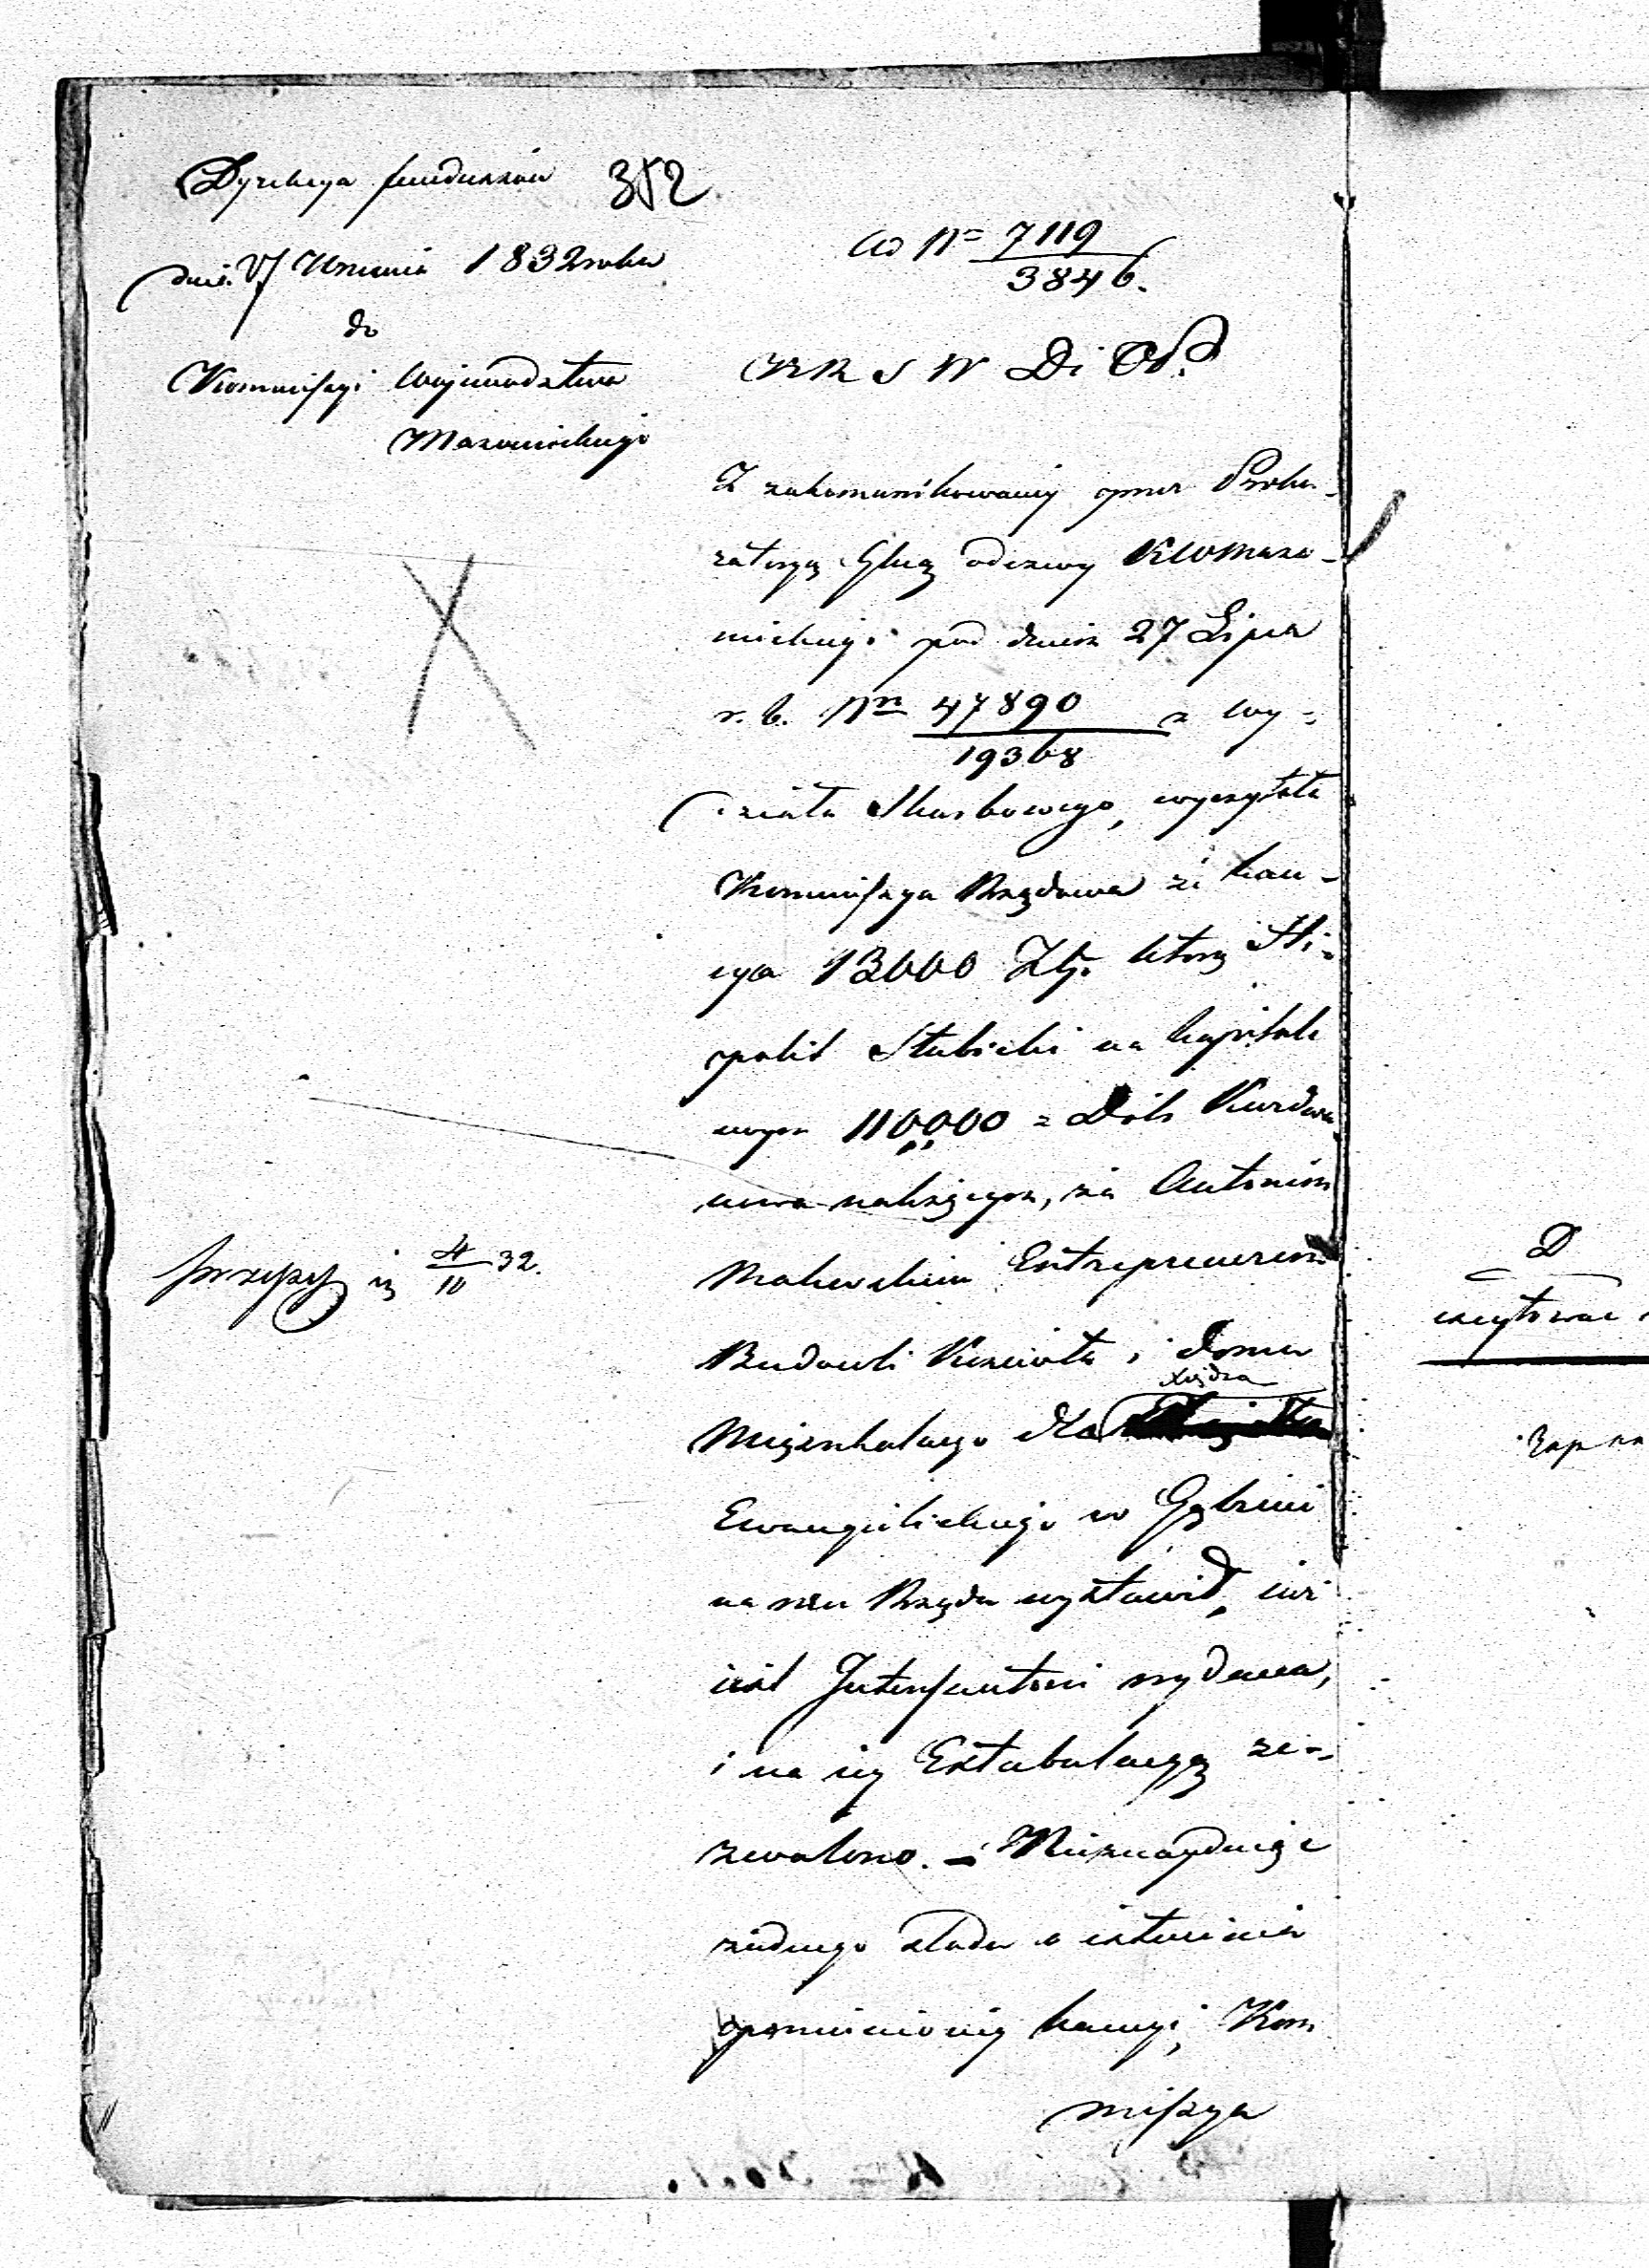 Dyrekcya funduszów 352
dnia Września 1832 roku
do
Kommissyi Województwa
Mazowieckiego
ad Nr 7119
3846.
K R S W D i O P
Z zakomunikowanej przez Proku-
ratoryą Głną odezwy K W Mazo-
wieckiego pod dniem 27 Lipca
r. b. Nr 47890 z Wy-
19368
działu Skarbowego, wyczytała
Kommissya Rządowa że kau-
cya 13000 Złp. którą Hi-
polit Słubicki na kapitale
110,000 z Dóbr
należącym, za Antonim
Makowskim Entreprenerem
Budowli Kościoła i domu
xiędza
Mięszkalnego dla
Ewangelickiego w Gąbinie
na rzecz Rządu wystawił,
jest wydana,
i na jej Extabulacyą ze-
zwolono. – Nieznajdując
żadnego śladu o istnieniu
pomienionej kaucyi, Kom
missya
przepis 4/10 32.